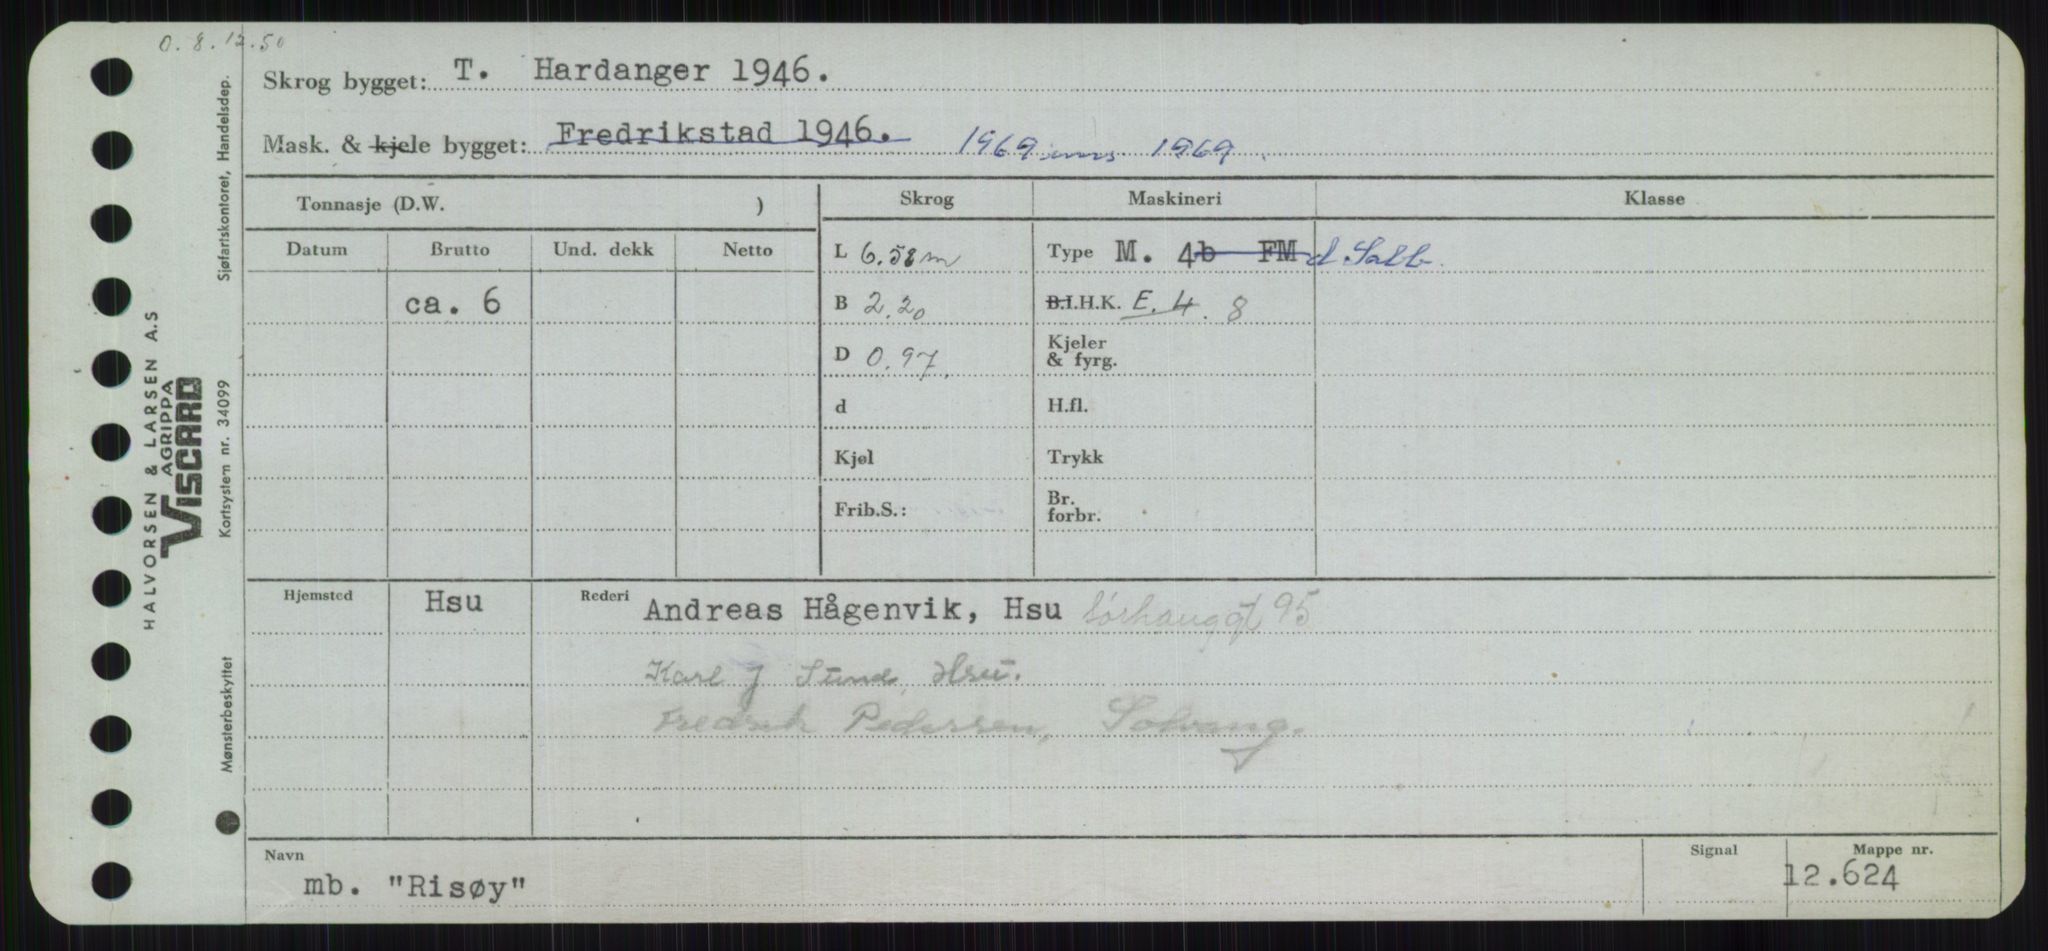 O. 8.12.50
Skrog bygget: T. Hardanger 1946.
Mask. & kjele bygget: Fredrikstad 1946. 1969 ins 1969.
Tonnasje (D.W. )
Skrog
Maskineri
Klasse
Datum Brutto Und. dekk Netto
L 6.58 m
Type M. 4b FM d. Sabb.
ca. 6
B 2.20
B.I.H.K. E. 4. 8
D 0.97.
Kjeler & fyrg.
d
H.fl.
Kjøl
Trykk
Frib.S.:
Br. forbr.
Hjemsted Hsu Rederi Andreas Hågenvik, Hsu Sørhauggt 95
Karl J Sund, Hsu.
Fredrik Pedersen, Solvang.
Navn
Signal
Mappe nr.
mb. "Risøy"
12.624
Sjøfartskontoret, Handelsdep.
Kortsystem nr. 34099
Mønsterbeskyttet
HALVORSEN & LARSEN A.S
AGRIPPA
VISCARD